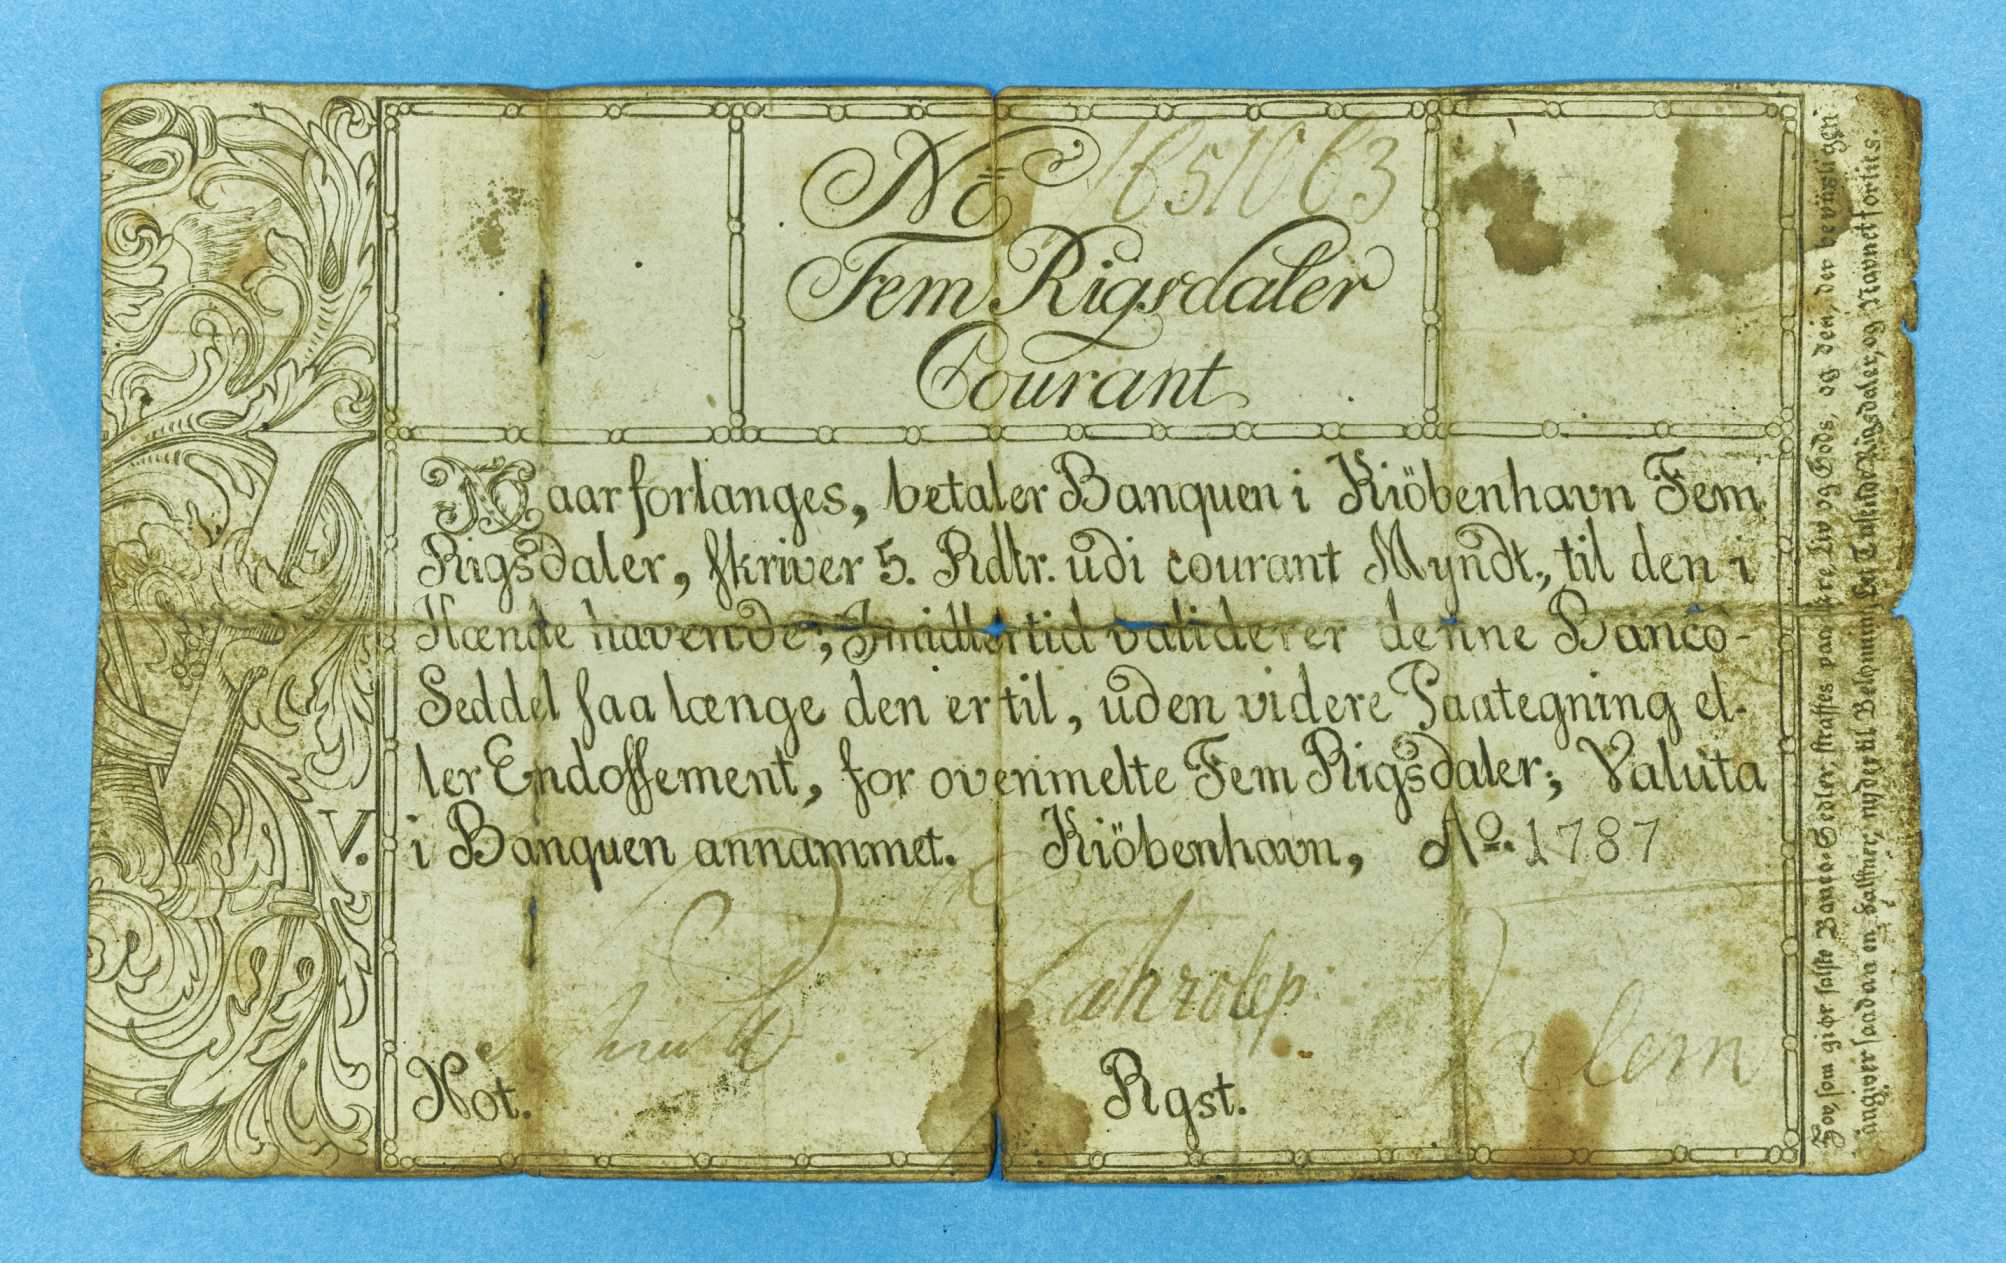 No 1651063
Fem Rigsdaler
Courant
Naar forlanges, betaler Banquen i Kiöbenhavn Fem
Rigsdaler, skriver 5. Rdlr. udi courant Myndt, til den i
Hænde havende; Imidlertid validerer denne Banco-
Seddel saa længe den er til, uden videre Paategning el-
ler Endossement, for ovenmelte Fem Rigsdaler; Valuta
i Banquen annammet. Kiöbenhavn, Ao. 1787
V.
Not.
Rgst.
Hvo, som giør falske Banco-Sedler, straffes paa Ære, Liv og Gods, og den, der beviisligen
angiver saadan en Falskner, nyder til Belønning Eet Tusende Rigsdaler, og Navnet forties.